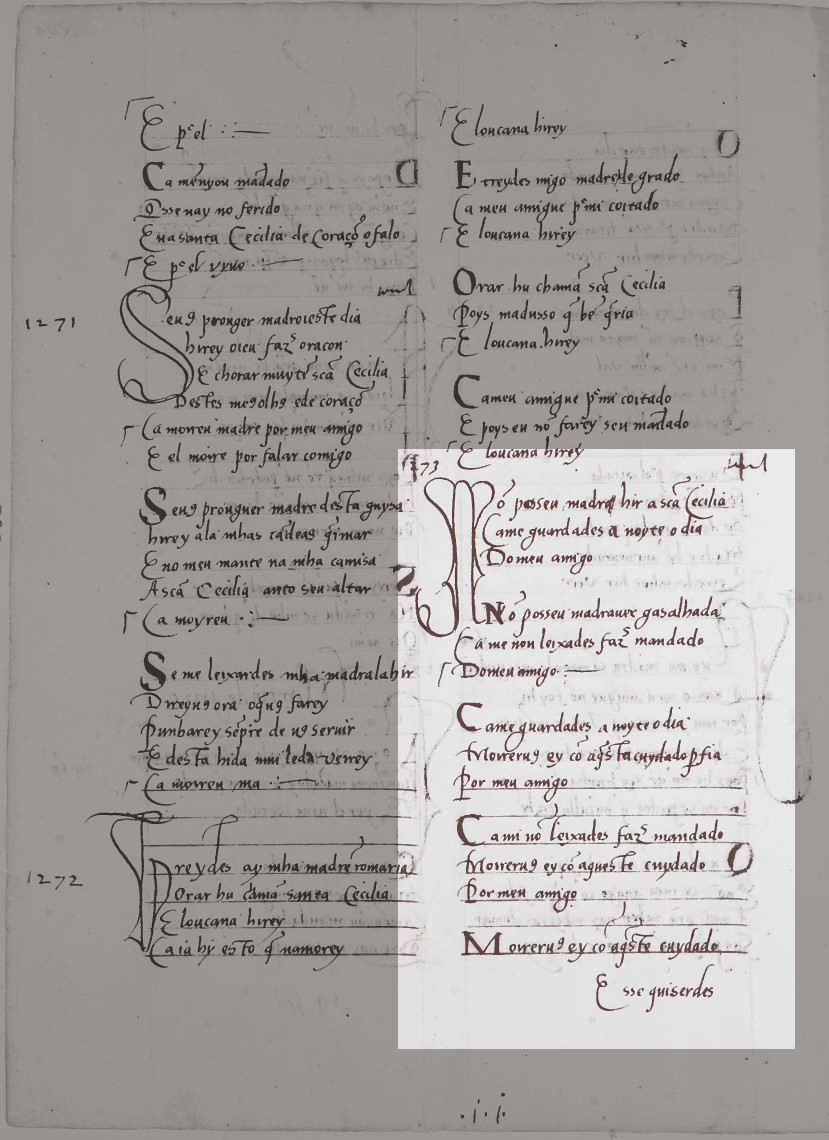 E pᵉel
Ca menyou mādado
Qsse nay no ferido
Eua santa Cecilia de Coraçõ o falo
E pᵉel vyuo
1271
Seuꝯ prouger madroieste dia
hirey oieu fazᷣ oracon
E chorar muytē scā Cecilia
Destes meꝯ olhꝯ e de coraçõ
Ca moireu madre por meu amigo
E el moire por falar comigo
Seuꝯ prouguer madre desta guysa
hirey ala mhas cādeas q̄imar
E no meu mante na mha camisa
A scā Cecilia anto seu altar
Ca moyreu
Se me leixardes mha madralahir
Direyuꝯ ora oq̄uꝯ farey
Punharey sēpre de uꝯ seruir
E desta hida mui leda verrey
Ca moireu ma
1272
Treydes ay mha madrē romaria
Orar hu chamā santa Cecilia
E loucana hirey
Ca ia hy esto q̄ namorey
E loucana hirey
E treydes migo madre de grado
Ca meu amigue pᵉ mi coitado
E loucana hirey
Orar hu chamā scā Cecilia
Poys madusso q̄ bē q̄ria
E loucana hirey
Ca meu amigue pᵉ mi coitado
E poys eu nō farey seu mandado
E loucana hirey
1273
Nō posseu madre hir a scā Cecilia
Came guardades a noyte o dia
Do meu amigo
Nō posseu madrauer gasalhada
Ca me non leixades fazᷣ mandado
Do meu amigo
Came guardades a noyte o dia
Moireruꝯ ey cō aq̄sta cuydado ꝑfia
Por meu amigo
Ca mi nō leixades fazᷣ mandado
Moireruꝯ ey cō aqueste cuydado
Por meu amigo
Moireruꝯ ey cō aq̄ste cuydado
E sse quiserdes